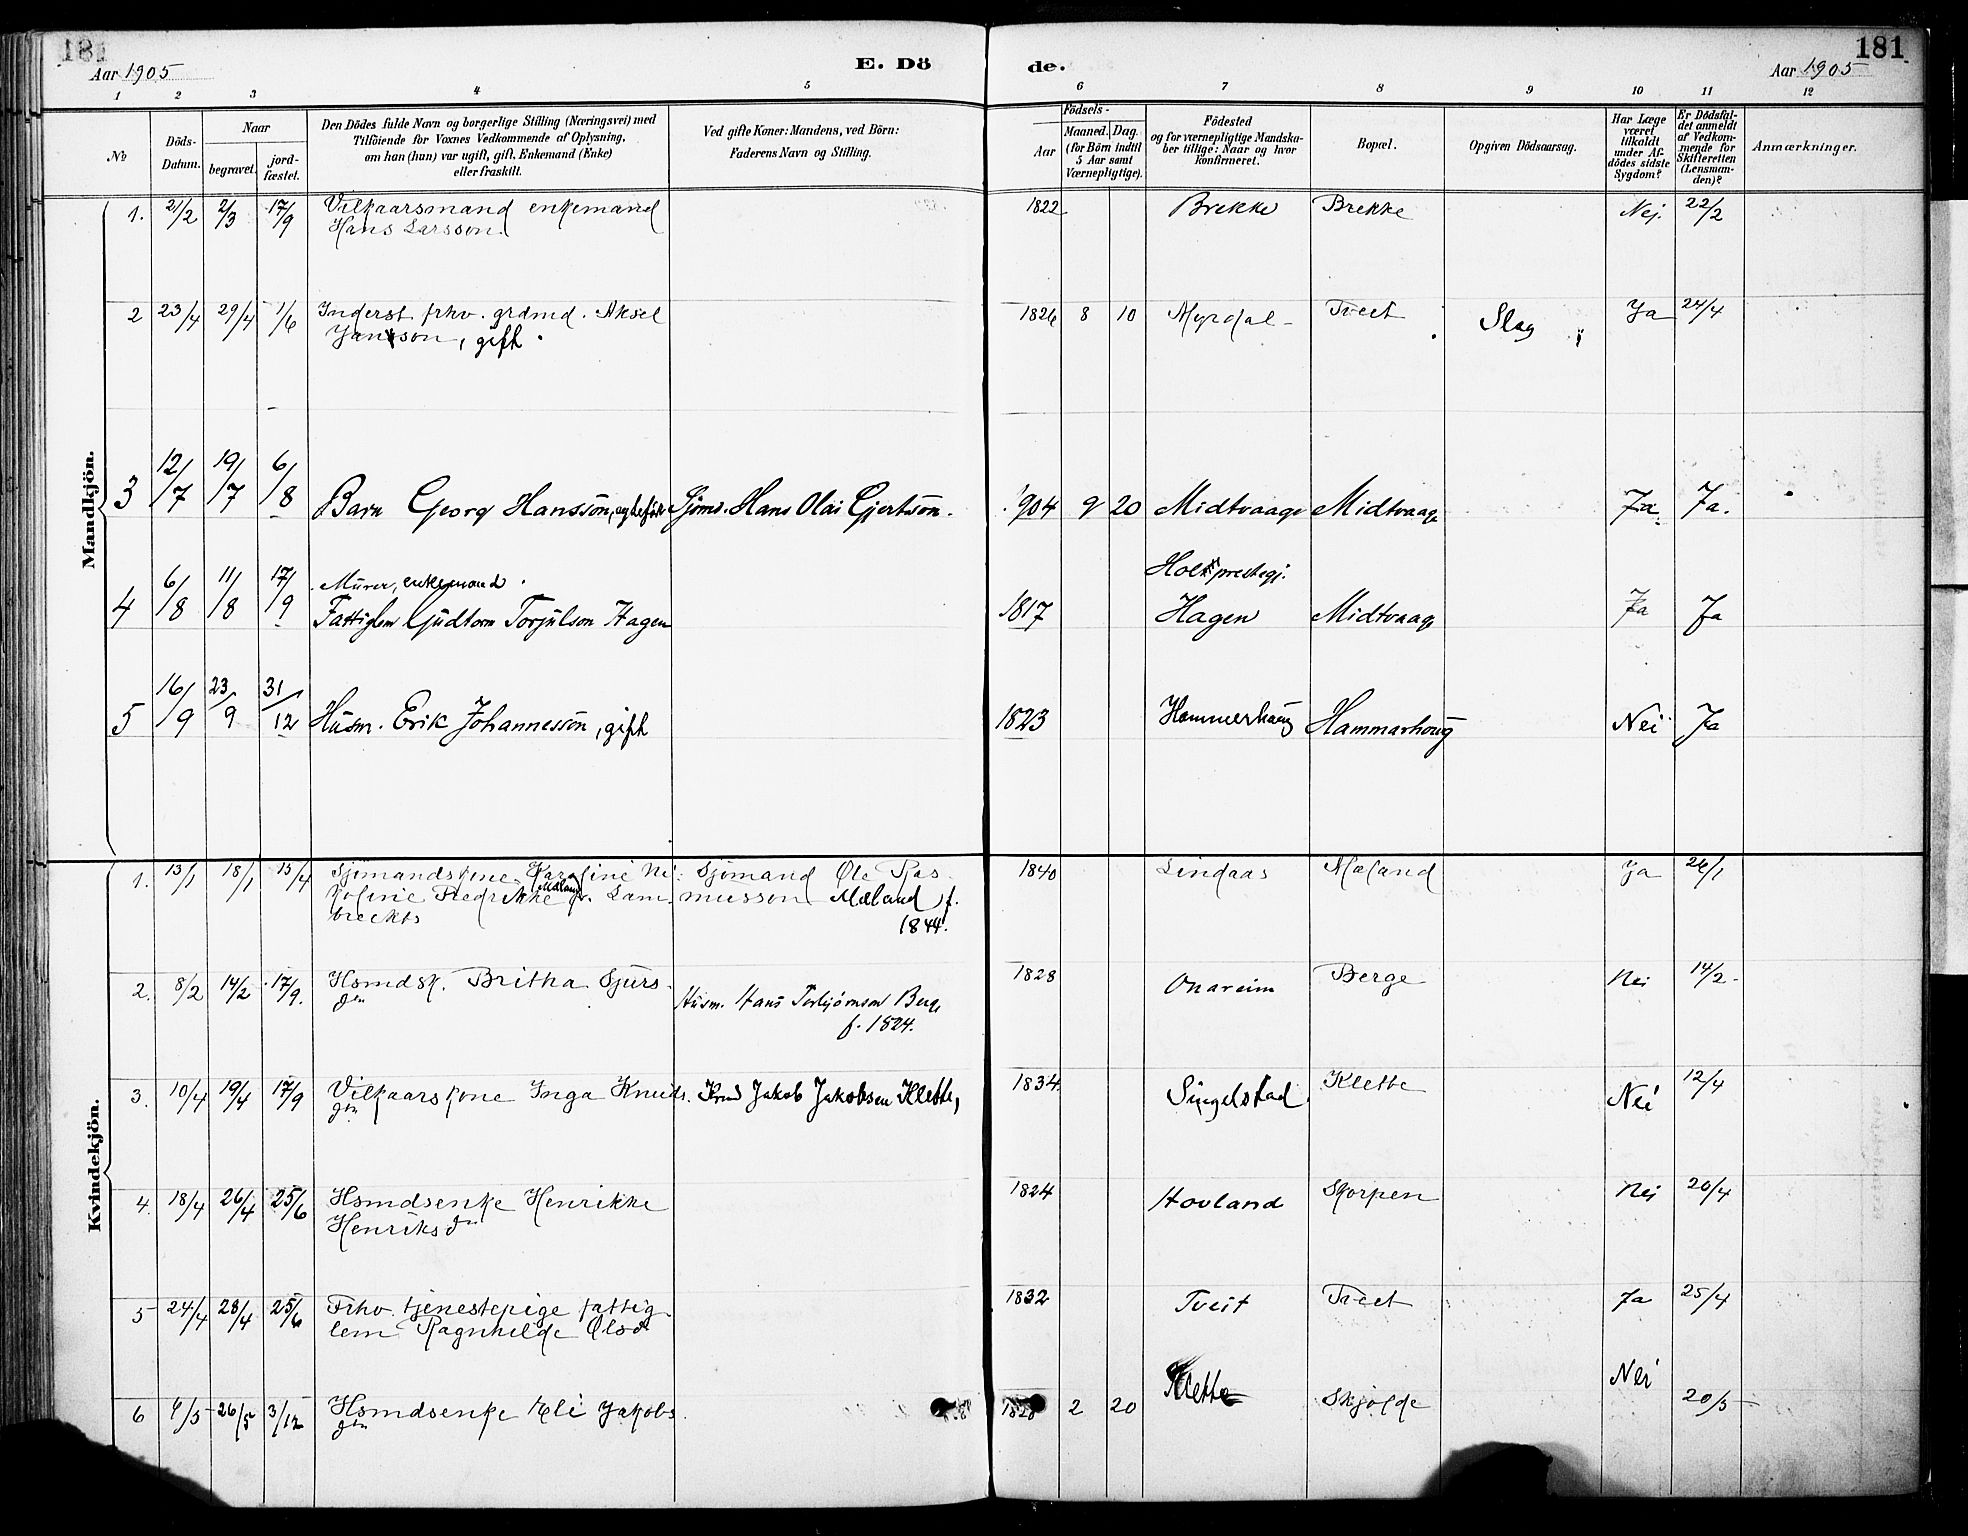 181
Aar 1905
E. Dö
de.
181
Aar 1905
1 2 3 4 5 6 7 8 9 10 11 12
No
Döds-Datum.
Naar
begravet.
jord-fæstet.
Den Dödes fulde Navn og borgerlige Stilling (Næringsvei) med
Tilföiende for Voxnes Vedkommende af Oplysning,
om han (hun) var ugift, gift, Enkemand (Enke)
eller fraskilt.
Ved gifte Koner: Mandens, ved Börn:
Faderens Navn og Stilling.
Födsels-
Aar
Maaned. Dag.
(for Börn indtil
5 Aar samt
Værnepligtige).
Födested
og for værnepligtige Mandska-
ber tillige: Naar og hvor
konfirmeret.
Bopæl.
Opgiven Dödsaarsag.
Har Læge
været
tilkaldt
under Af-
dödes sidste
Sygdom?
Er Dödsfal-
det anmeldt
af Vedkom-
mende for
Skifteretten
(Lensman-
den)?
Anmærkninger.
Mandkjön.
1. 21/2 2/3 17/9 Vilkaarsmand enkemand 1822 Brekke Brekke Nej. 22/2
Hans Larsson.
2 23/4 29/4 1/6 Inderst frhv. grdmd. Aksel 1826 8 10 Myrdal Tveit Slag Ja 24/4
Jansson, gift.
3 12/7 19/7 6/8 Barn Georg Hansson, Sjömd. Hans Olai Gjertson. 1904 9 20 Midtvaage Midtvaage Ja. Ja.
Murer, enkemand. prestegj.
4 6/8 11/8 17/9 Fattiglem Gudtorm Torjulson Hagen 1817 Hagen Midtvaage Ja Ja
5 16/9 23/9 31/12 Husm. Erik Johannesson, gift 1823 Hammerhaug Hammarhoug Nei Ja
Kvindekjön.
1. 13/1 18/1 15/4 Sjömandskone Karoline Ni- Sjömand Ole Ras- 1840 Lindaas Mæland Ja 26/1
koline Fredrikke Mæland f. Lam- musson Mæland, f.
breckts 1844.
2. 8/2 14/2 17/9. Hsmdsk. Britha Sjurs- 1828 Onareim Berge Nei 14/2
dtr Husm. Hans Torbjörnson Berge
f. 1824.
3. 10/4 19/4 17/9 Vilkaarskone Inga Knuds. Jakob Jakobsen Klette, 1834 Singelstad Klette Nei 12/4
dtr
4. 18/4 26/4 25/6 Hsmdsenke Henrikke 1824 Hovland Skorpen Nei 26/4
Henriksdtr
5 24/4 28/4 25/6 Frhv. tjenestepige fattig- 1832 Tveit Tveit Ja 25/4
lem Ragnhilde Olsd
6 26/5 3/12 Hsmdsenke Eli Jakobs 1828 2 20 Klette Skjolde Nei 20/5
dtr